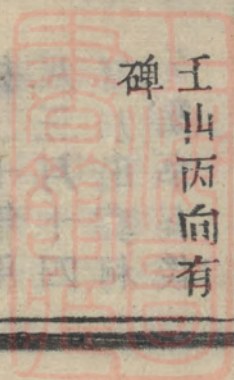 壬山丙向有
碑